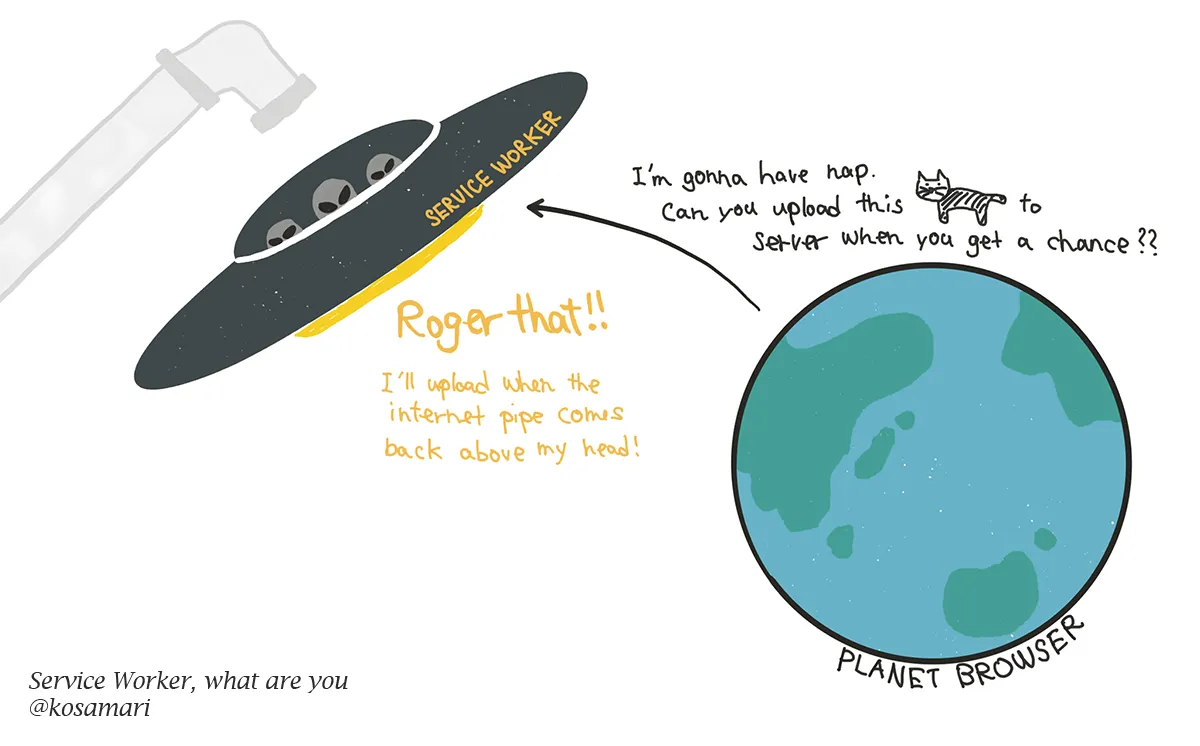 SERVICE WORKER
I'm gonna have nap.
can you upload this to
server when you get a chance??
Roger that!!
I'll upload when the
internet pipe comes
back above my head!
PLANET BROWSER
Service Worker, what are you
@kosamari